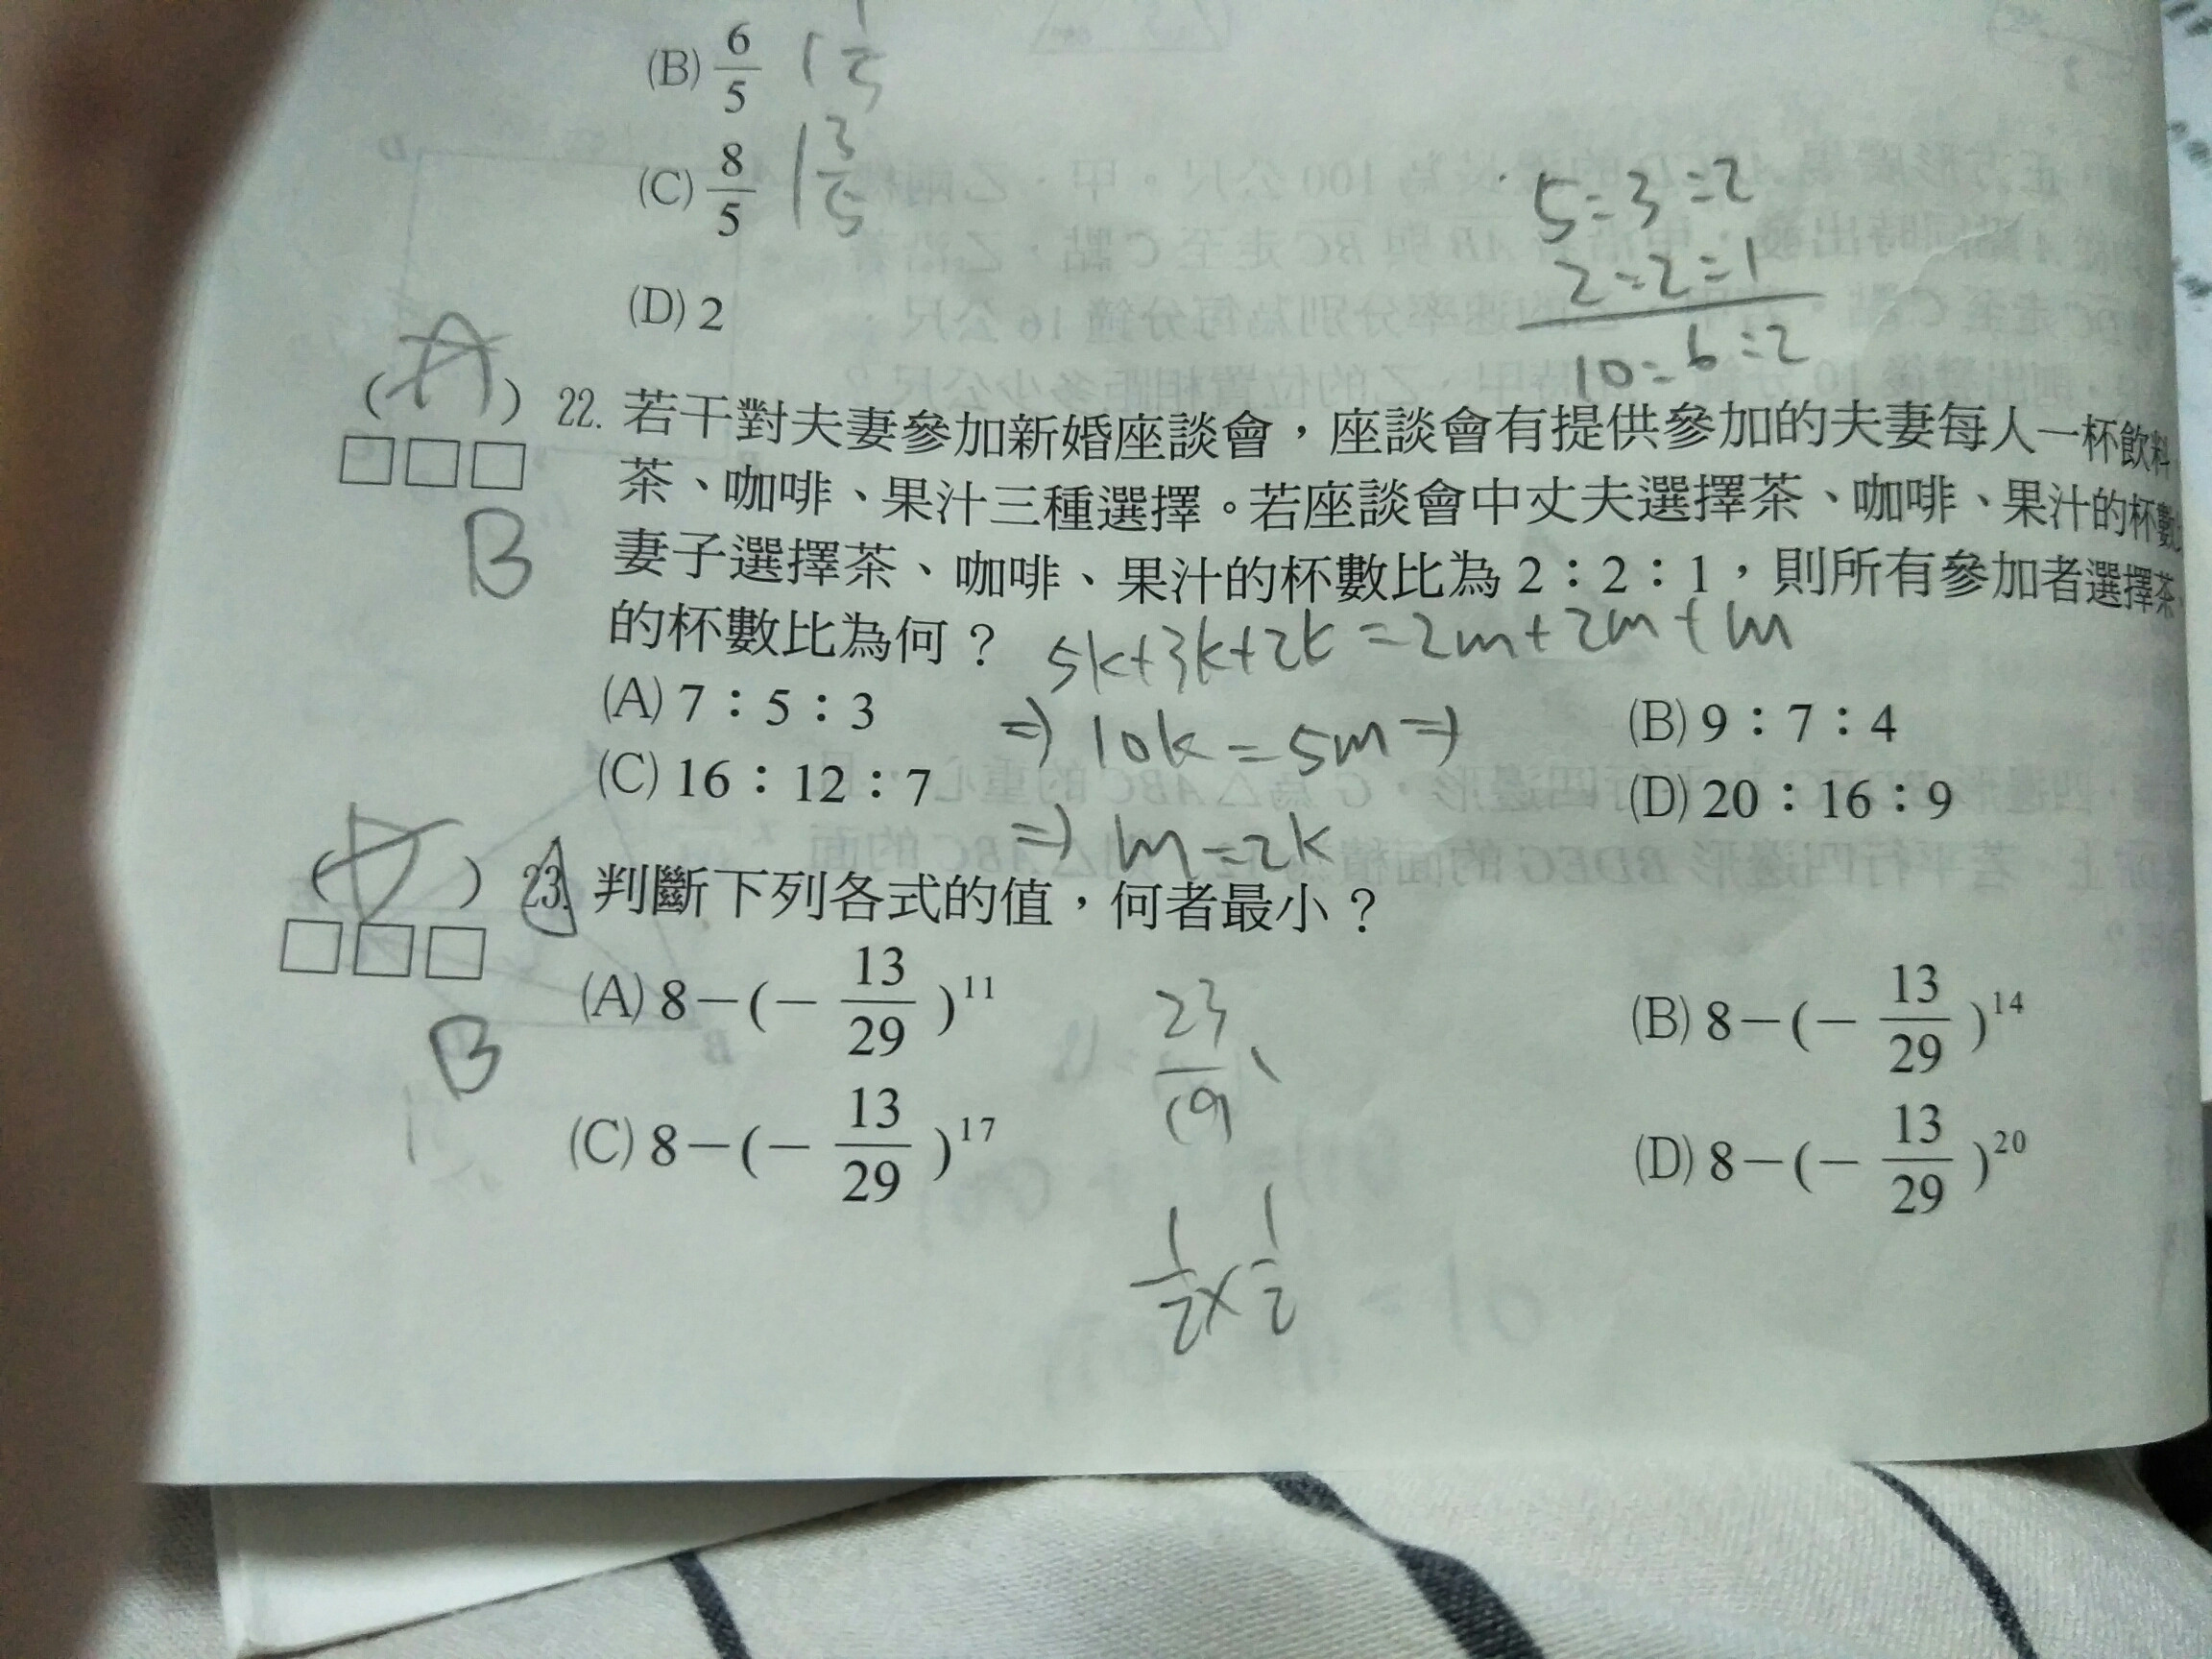 (B) 6/5 1 1/5
(C) 8/5 1 3/5
(D) 2
5:3:2
2:2:1
10:6:2
(A) 22. 若干對夫妻參加新婚座談會，座談會有提供參加的夫妻每人一杯飲料
茶、咖啡、果汁三種選擇。若座談會中丈夫選擇茶、咖啡、果汁的杯數
B
妻子選擇茶、咖啡、果汁的杯數比為 2：2：1，則所有參加者選擇茶、
的杯數比為何？
5k+3k+2k=2m+2m+m
(A) 7：5：3
⇒ 10k=5m ⇒
(B) 9：7：4
(C) 16：12：7
(D) 20：16：9
⇒ m=2k
(D) 23. 判斷下列各式的值，何者最小？
(A) 8－(－13/29)^11
(B) 8－(－13/29)^14
B
23/19、
(C) 8－(－13/29)^17
(D) 8－(－13/29)^20
1/2×1/2